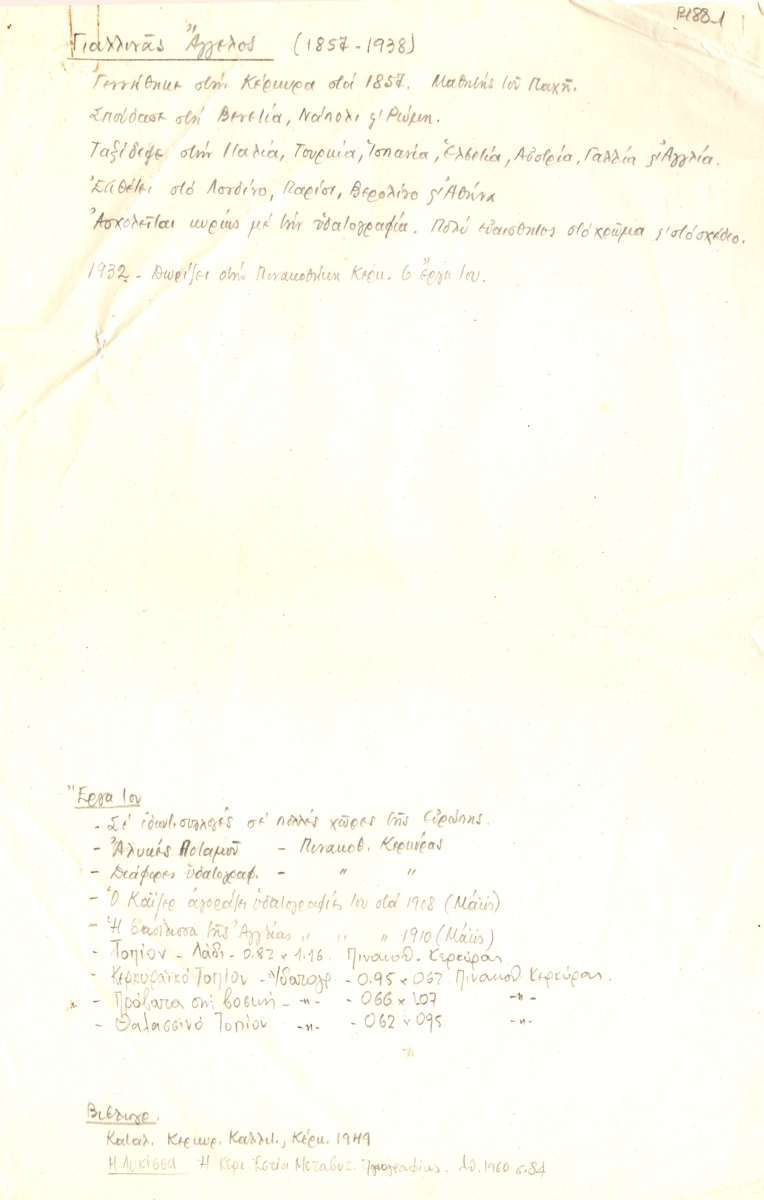 P188-1
Γιαλλινᾶς Ἄγγελος (1857-1938)
Γεννήθηκε στήν Κέρκυρα στά 1857. Μαθητής τοῦ Παχῆ.
Σπούδασε στή Βενετία, Νάπολι κ' Ρώμη.
Ταξίδεψε στήν Ιταλία, Τουρκία, Ἱσπανία, Ἑλβετία, Αὐστρία, Γαλλία κ' Ἀγγλία.
Ἐκθέτει στό Λονδίνο, Παρίσι, Βερολίνο κ' Ἀθήνα
Ἀσχολεῖται κυρίως μέ τήν ὑδατογραφία. Πολύ εὐαίσθητος στό χρῶμα κ' στό σχέδιο.
1932 - Δωρίζει στήν Πινακοθήκη Κερκ. 6 ἔργα του.
Ἔργα του
- Σέ ἰδιωτ. συλλογές σέ πολλές χῶρες τῆς Εὐρώπης.
- Ἁλυκές Ποταμοῦ - Πινακοθ. Κερκύρας
- Διάφορες ὑδατογραφ. - " "
- Ὁ Κάϊζερ ἀγοράζει ὑδατογραφίες του στά 1908 (Μάϊς)
- Ἡ βασίλισσα τῆς Ἀγγλίας " " " 1910 (Μάϊς)
- Τοπίον - Λάδι - 0.82 x 1.16 Πινακοθ. Κερκύρας
- Κερκυραϊκό Τοπίον - Ὑδατογρ. - 0.95 x 062 Πινακοθ Κερκύρας.
- Πρόβατα στή βοσκή - -"- - 066 x 1.07 -"-
- Θαλασσινό Τοπίον -"- - 062 x 095 -"-
Βιβλιογρ.
Καταλ. Κερκυρ. Καλλιτ., Κέρκ. 1949
Η. Λυκίσσα Ἡ Κερκ. Ἑστία Μεταβυζ. Ἁγιογραφίας. Ἀθ. 1960 σ. 84